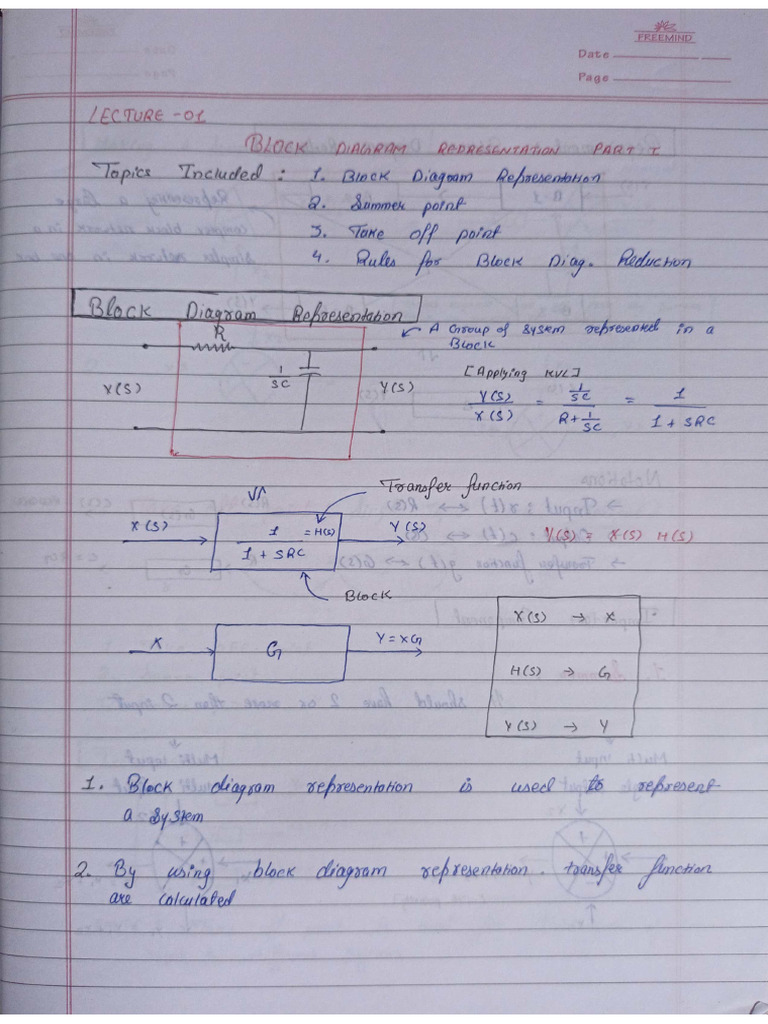 FREEMIND
Date
Page
LECTURE -01
BLOCK DIAGRAM REPRESENTATION PART I
Topics Included : 1. Block Diagram Representation
2. Summer point
3. Take off point
4. Rules for Block Diag. Reduction
Block Diagram Representation
R
A Group of system represented in a
Block
1/SC
X(S)
Y(S)
[Applying KVL]
Y(S)/X(S) = (1/SC)/(R+1/SC) = 1/(1+SRC)
Transfer function
X(S)
1/(1+SRC) = H(S)
Y(S)
Y(S) = X(S) H(S)
Block
X
G
Y=XG
X(S) → X
H(S) → G
Y(S) → Y
1. Block diagram representation is used to represent
a system
2. By using block diagram representation. transfer function
are calculated